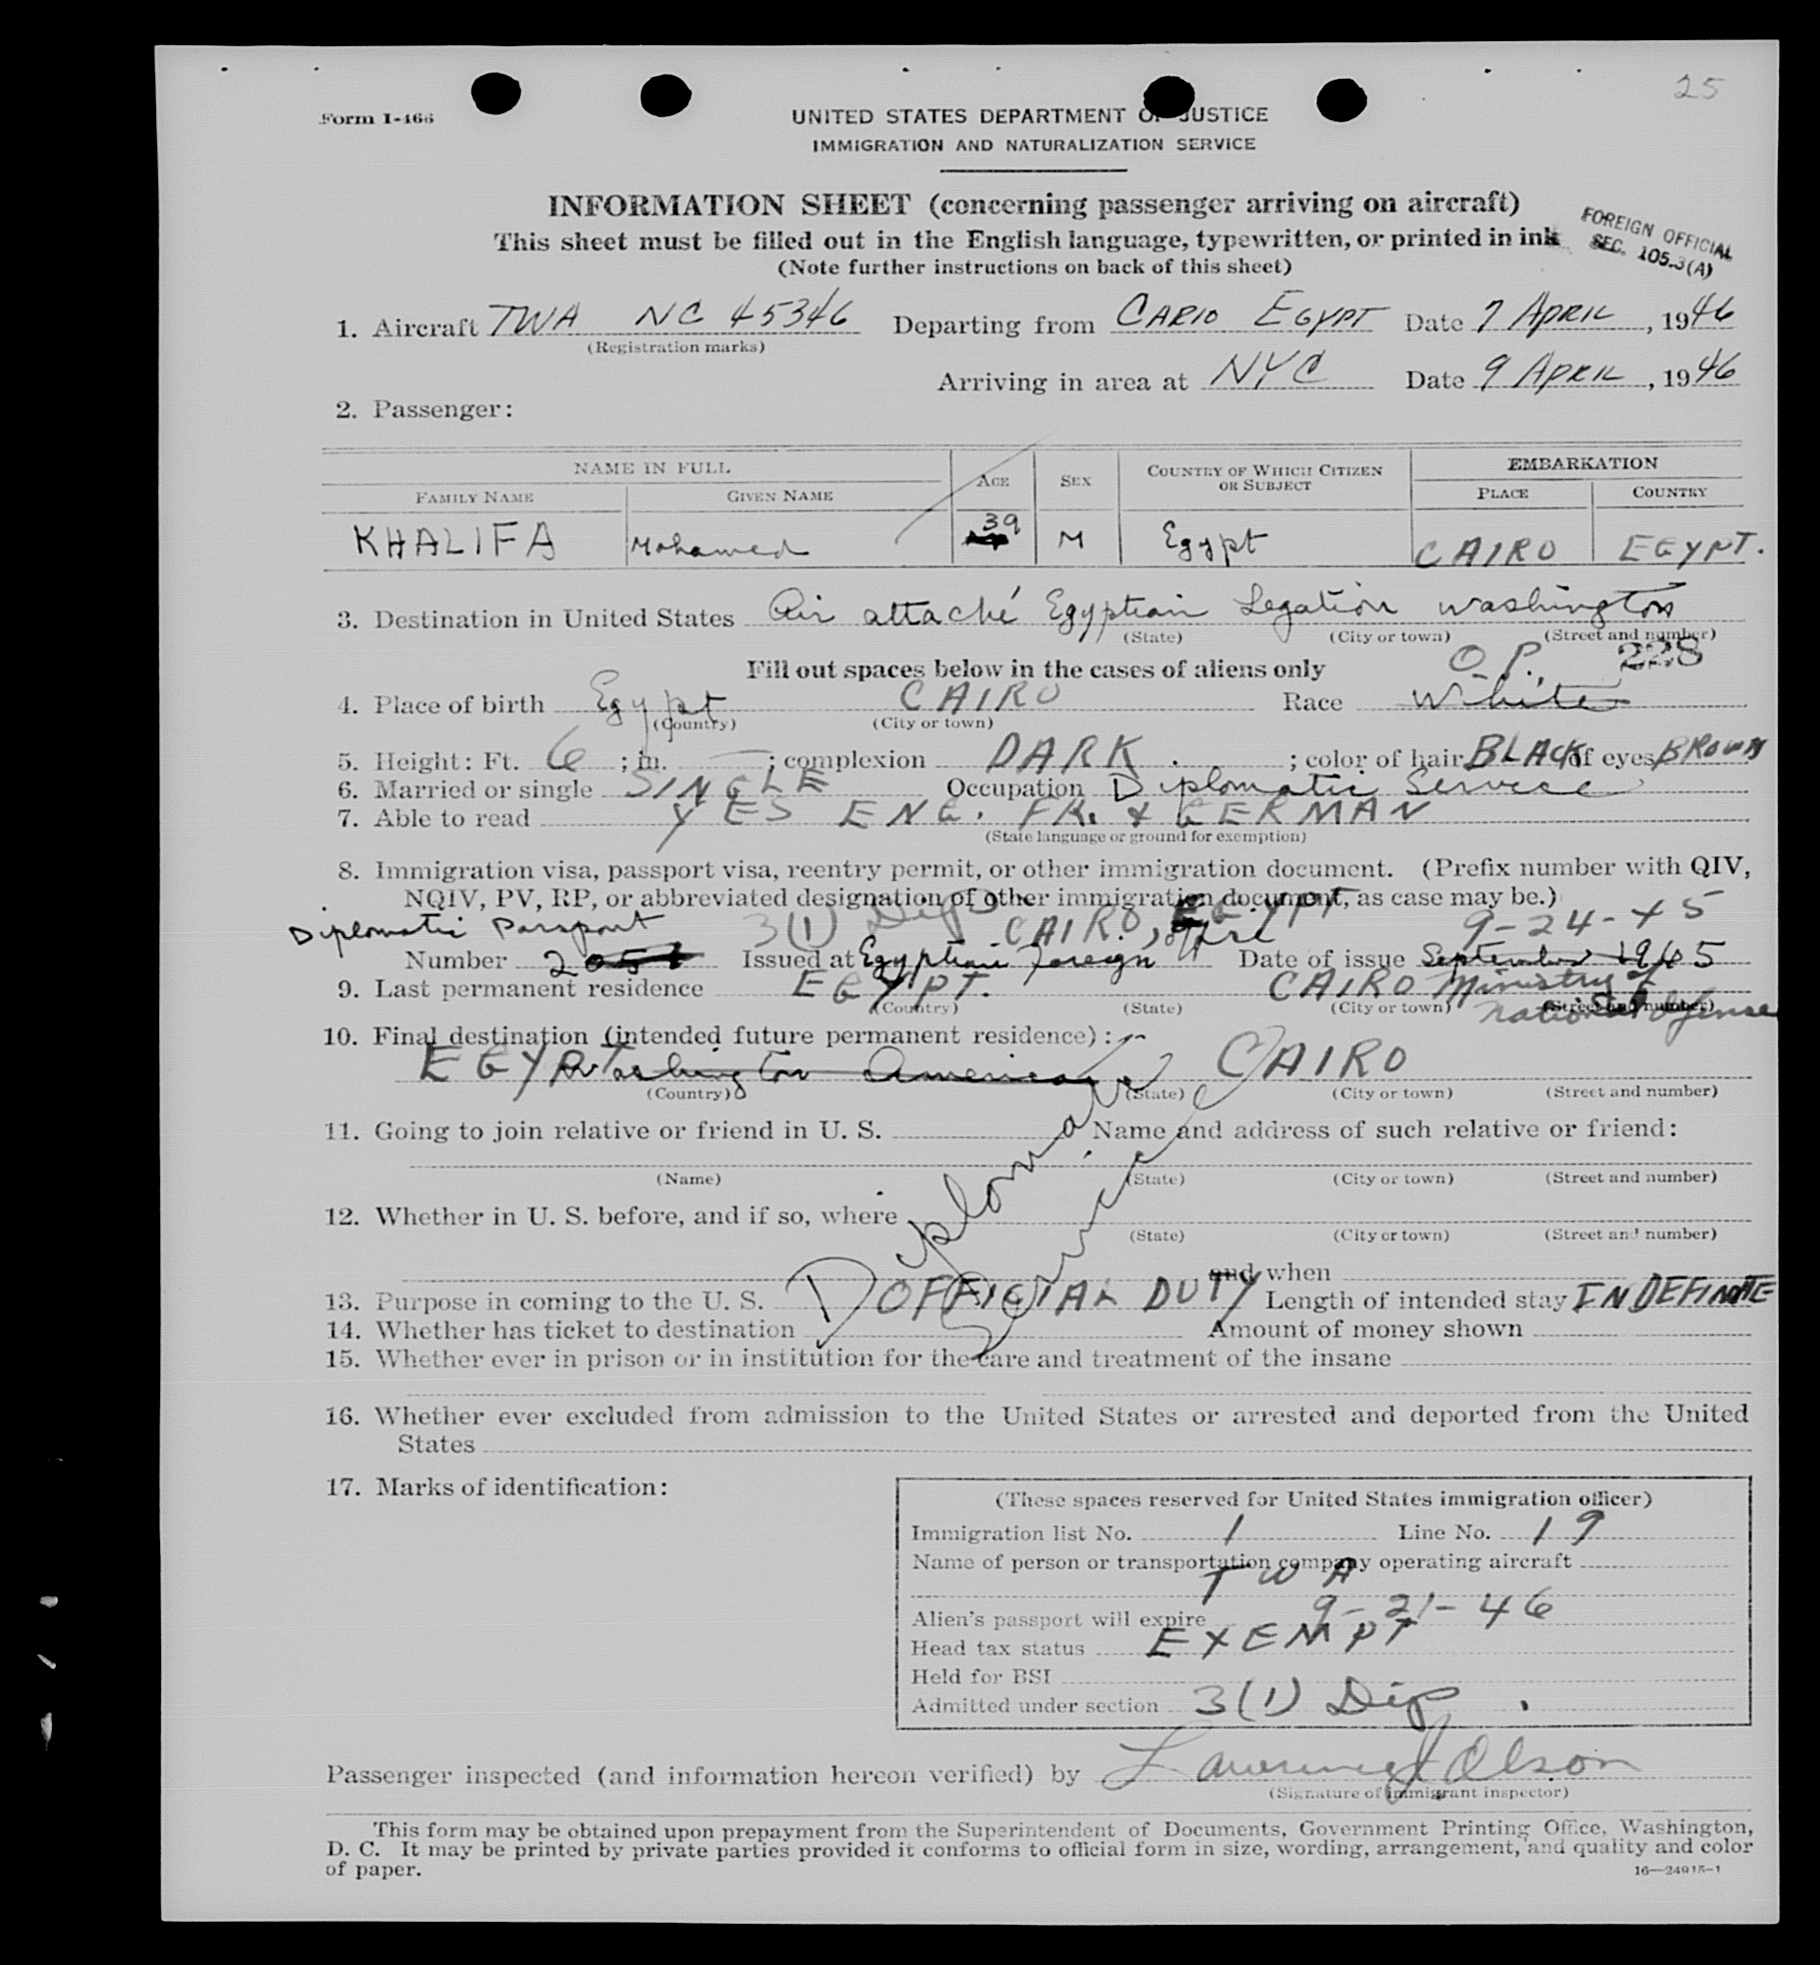 25
Form I-466
UNITED STATES DEPARTMENT OF JUSTICE
IMMIGRATION AND NATURALIZATION SERVICE
INFORMATION SHEET (concerning passenger arriving on aircraft)
This sheet must be filled out in the English language, typewritten, or printed in ink
(Note further instructions on back of this sheet)
FOREIGN OFFICIAL
SEC. 105.3(A)
1. Aircraft TWA NC 45346 Departing from CARIO EGYPT Date 7 APRIL, 1946
(Registration marks)
Arriving in area at NYC Date 9 APRIL, 1946
2. Passenger:
NAME IN FULL AGE SEX COUNTRY OF WHICH CITIZEN OR SUBJECT EMBARKATION
FAMILY NAME GIVEN NAME PLACE COUNTRY
KHALIFA Mohamed 39 M Egypt CAIRO EGYPT.
3. Destination in United States Air attaché Egyptian Legation Washington
(State) (City or town) (Street and number)
Fill out spaces below in the cases of aliens only O.P., 228
4. Place of birth Egypt CAIRO Race White
(Country) (City or town)
5. Height: Ft. 6 ; in. — ; complexion DARK. ; color of hair BLACK of eyes BROWN
6. Married or single SINGLE Occupation Diplomatic Service
7. Able to read YES ENG. FR. & GERMAN
(State language or ground for exemption)
8. Immigration visa, passport visa, reentry permit, or other immigration document. (Prefix number with QIV,
NQIV, PV, RP, or abbreviated designation of other immigration document, as case may be.)
Diplomatic Passport 3(1) Dip CAIRO, EGYPT 9-24-45
Number 2051 Issued at Egyptian Foreign office Date of issue September 1945
9. Last permanent residence EGYPT. CAIRO Ministry of
(Country) (State) (City or town) (Street and number)
National Defense
10. Final destination (intended future permanent residence):
EGYPT Washington America CAIRO
(Country) (State) (City or town) (Street and number)
11. Going to join relative or friend in U. S. Name and address of such relative or friend:
(Name) (State) (City or town) (Street and number)
12. Whether in U. S. before, and if so, where
(State) (City or town) (Street and number)
Diplomatic
Service
and when
13. Purpose in coming to the U. S. OFFICIAL DUTY Length of intended stay INDEFINITE
14. Whether has ticket to destination Amount of money shown
15. Whether ever in prison or in institution for the care and treatment of the insane
16. Whether ever excluded from admission to the United States or arrested and deported from the United
States
17. Marks of identification:
(These spaces reserved for United States immigration officer)
Immigration list No. 1 Line No. 19
Name of person or transportation company operating aircraft
TWA
Alien's passport will expire 9-21-46
Head tax status EXEMPT
Held for BSI
Admitted under section 3(1) Dip.
Passenger inspected (and information hereon verified) by Lawrence Olson
(Signature of immigrant inspector)
This form may be obtained upon prepayment from the Superintendent of Documents, Government Printing Office, Washington,
D. C. It may be printed by private parties provided it conforms to official form in size, wording, arrangement, and quality and color
of paper.
16—24915-1